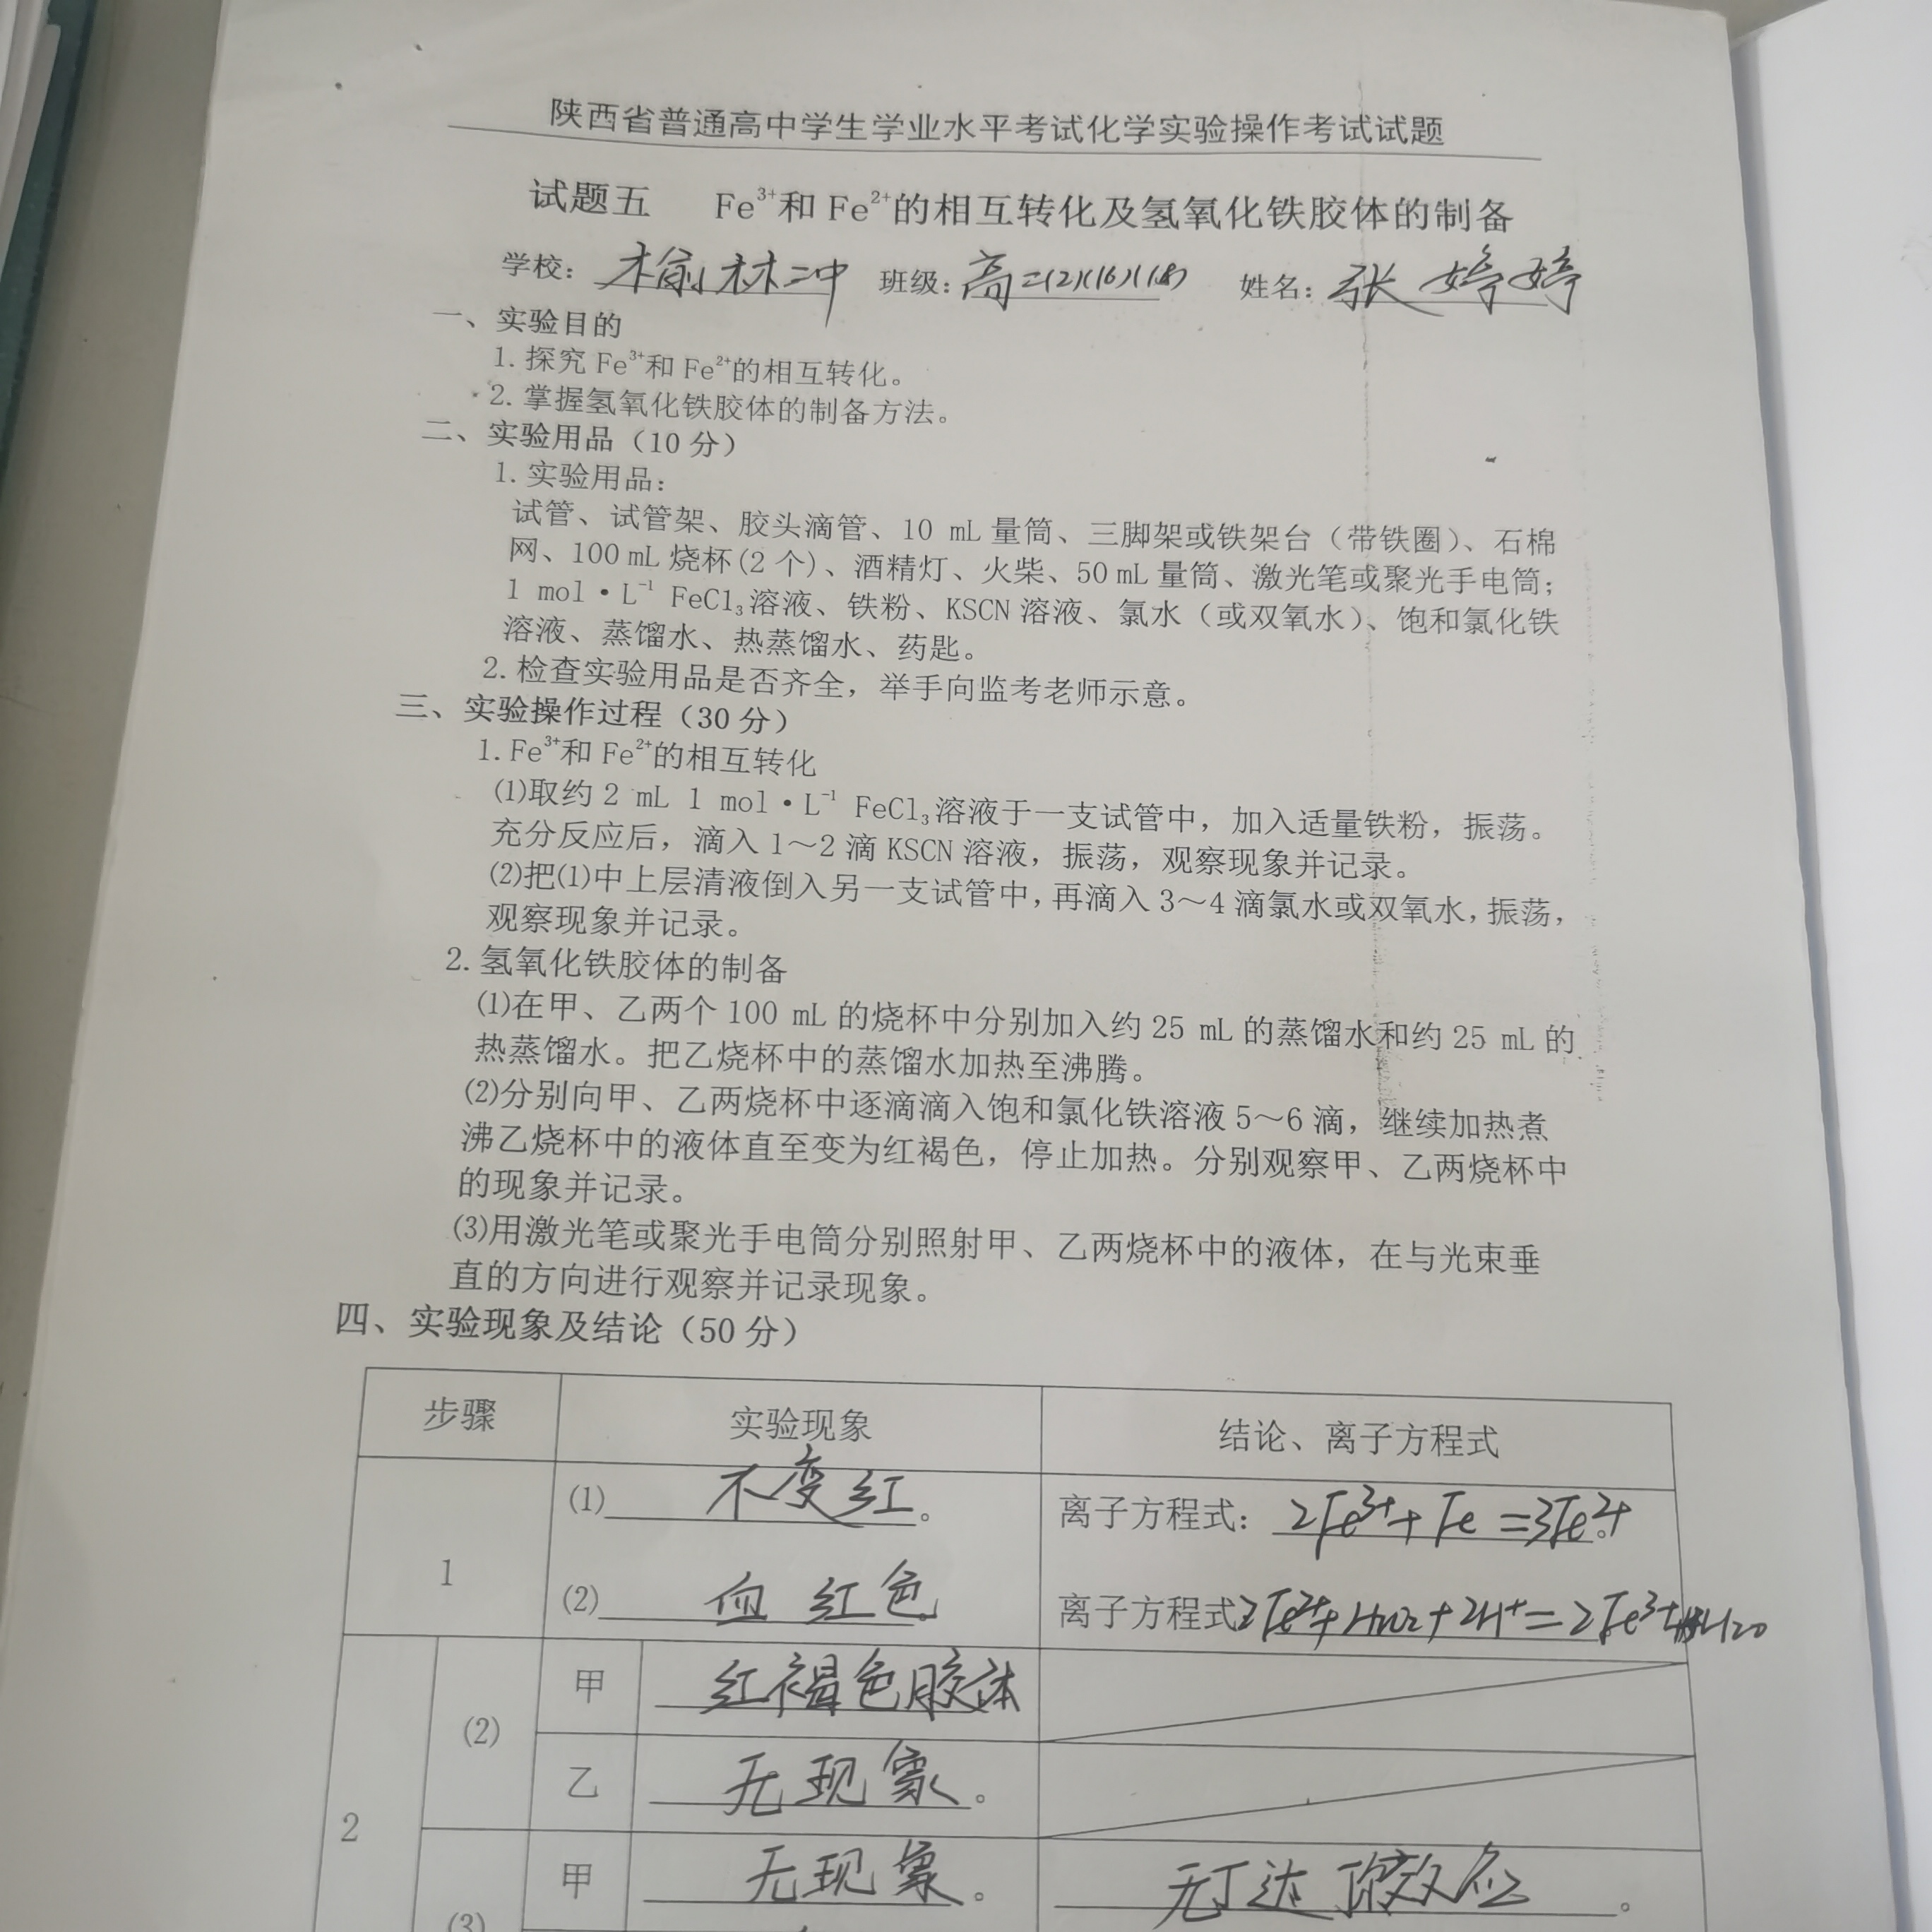 陕西省普通高中学生学业水平考试化学实验操作考试试题
试题五 Fe³⁺和 Fe²⁺的相互转化及氢氧化铁胶体的制备
学校: 榆林二中 班级: 高二(2)(16)(18) 姓名: 张婷婷
一、实验目的
1. 探究 Fe³⁺和 Fe²⁺的相互转化。
2. 掌握氢氧化铁胶体的制备方法。
二、实验用品（10 分）
1. 实验用品:
试管、试管架、胶头滴管、10 mL 量筒、三脚架或铁架台（带铁圈）、石棉
网、100 mL 烧杯(2 个)、酒精灯、火柴、50 mL 量筒、激光笔或聚光手电筒;
1 mol·L⁻¹ FeCl₃溶液、铁粉、KSCN 溶液、氯水（或双氧水）、饱和氯化铁
溶液、蒸馏水、热蒸馏水、药匙。
2. 检查实验用品是否齐全，举手向监考老师示意。
三、实验操作过程（30 分）
1. Fe³⁺和 Fe²⁺的相互转化
⑴取约 2 mL 1 mol·L⁻¹ FeCl₃溶液于一支试管中，加入适量铁粉，振荡。
充分反应后，滴入 1～2 滴 KSCN 溶液，振荡，观察现象并记录。
⑵把⑴中上层清液倒入另一支试管中,再滴入 3～4 滴氯水或双氧水,振荡,
观察现象并记录。
2. 氢氧化铁胶体的制备
⑴在甲、乙两个 100 mL 的烧杯中分别加入约 25 mL 的蒸馏水和约 25 mL 的
热蒸馏水。把乙烧杯中的蒸馏水加热至沸腾。
⑵分别向甲、乙两烧杯中逐滴滴入饱和氯化铁溶液 5～6 滴，继续加热煮
沸乙烧杯中的液体直至变为红褐色，停止加热。分别观察甲、乙两烧杯中
的现象并记录。
⑶用激光笔或聚光手电筒分别照射甲、乙两烧杯中的液体，在与光束垂
直的方向进行观察并记录现象。
四、实验现象及结论（50 分）
步骤 实验现象 结论、离子方程式
1
(1) 不变红。 离子方程式: 2Fe³⁺+Fe=3Fe²⁺。
(2) 血红色。 离子方程式 2Fe²⁺+H₂O₂+2H⁺=2Fe³⁺+H₂O
2
(2) 甲 红褐色胶体
乙 无现象。
(3) 甲 无现象。 无丁达尔效应。